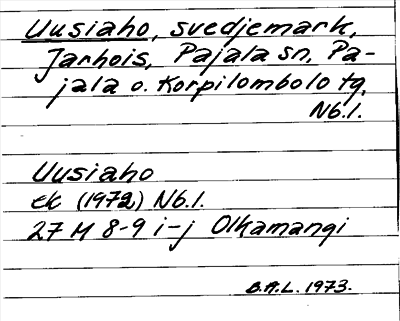 Uusiaho, svedjemark,
Jarhois, Pajala sn, Pa-
jala o. Korpilombolo tg,
Nb.l.
Uusiaho
ek (1972) Nb.l.
27 M 8-9 i-j Olkamangi
B.A.L. 1973.